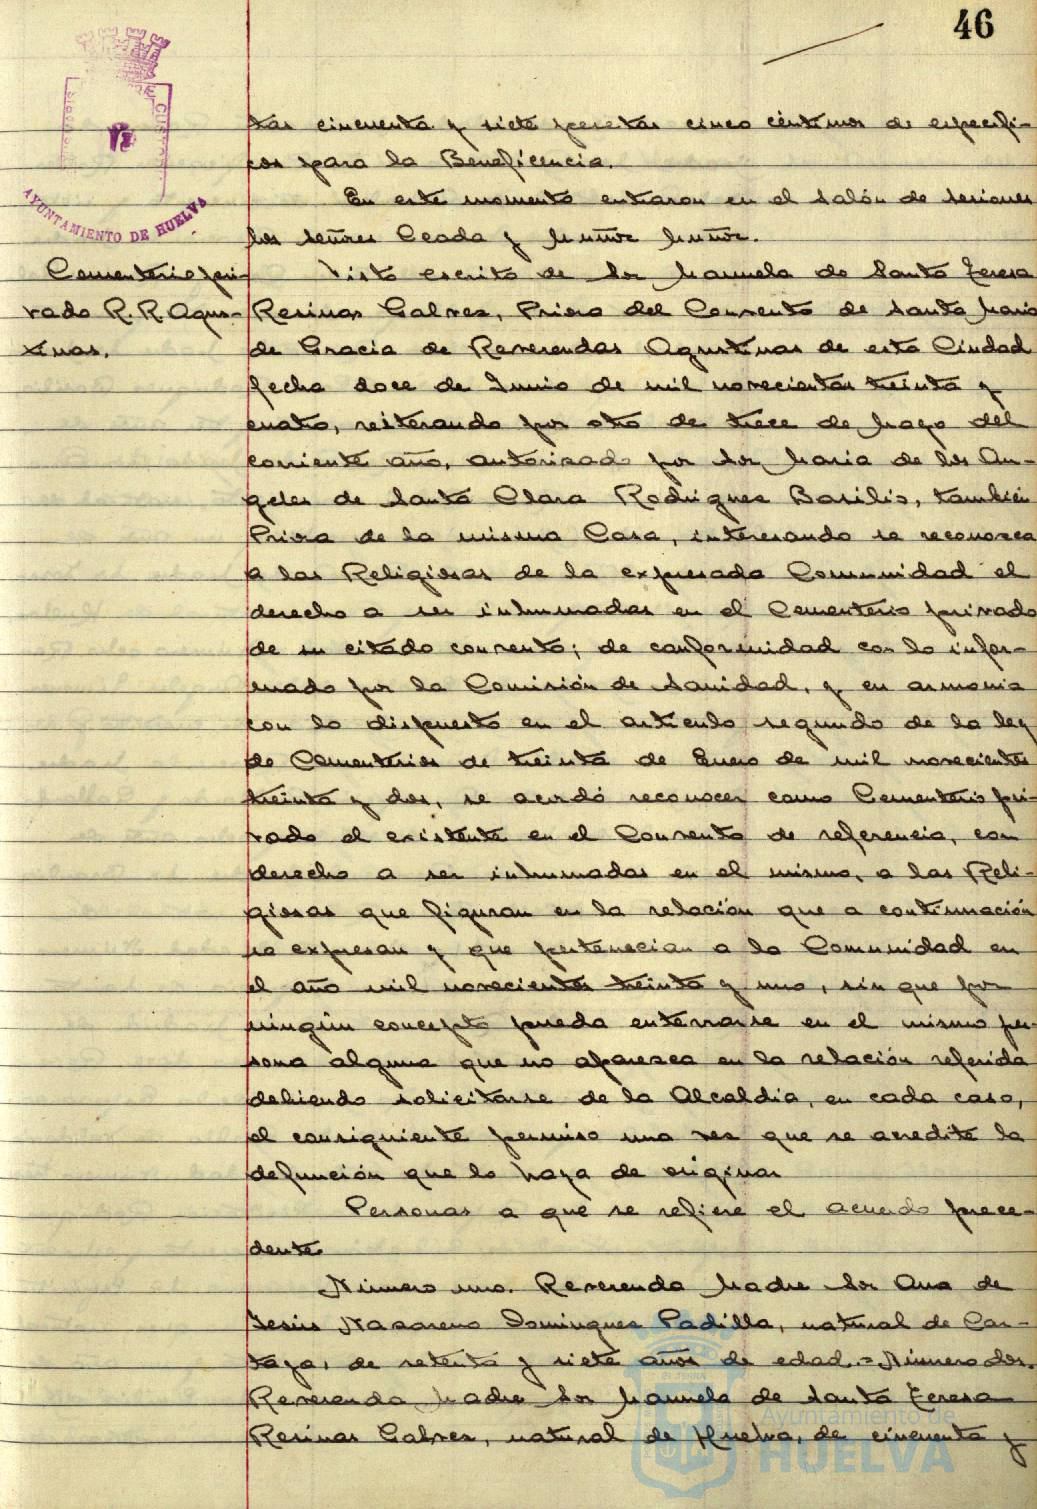 46
AYUNTAMIENTO DE HUELVA
tas cincuenta y siete pesetas cinco céntimos de específi-
cos para la Beneficencia.
En este momento entraron en el salón de sesiones
los señores Ceada y Muñoz Muñoz.
Cementerio pri-
vado R. R. Agus-
tinas.
Visto escrito de Sor Manuela de Santa Teresa
Resinas Galvez, Priora del Convento de Santa Maria
de Gracia de Reverendas Agustinas de esta Ciudad
fecha doce de Junio de mil novecientos treinta y
cuatro, reiterando por otro de trece de Mayo del
corriente año, autorizado por Sor Maria de los An-
geles de Santa Clara Rodriguez Basilio, también
Priora de la misma Casa, interesando se reconozca
a las Religiosas de la expresada Comunidad el
derecho a ser inhumadas en el Cementerio privado
de su citado convento; de conformidad con lo infor-
mado por la Comisión de Sanidad, y en armonia
con lo dispuesto en el artículo segundo de la ley
de Cementerios de treinta de Enero de mil novecientos
treinta y dos, se acordó reconocer como Cementerio pri-
vado el existente en el Convento de referencia, con
derecho a ser inhumadas en el mismo, a las Reli-
giosas que figuran en la relación que a continuación
se expresan y que pertenecian a la Comunidad en
el año mil novecientos treinta y uno, sin que por
ningún concepto pueda enterrarse en el mismo per-
sona alguna que no aparezca en la relación referida
debiendo solicitarse de la Alcaldia, en cada caso,
el consiguiente permiso una vez que se acredite la
defunción que lo haya de originar
Personas a que se refiere el acuerdo prece-
dente.
Número uno. Reverenda Madre Sor Ana de
Jesús Nazareno Dominguez Padilla, natural de Car-
taya, de setenta y siete años de edad.= Número dos.
Reverenda Madre Sor Manuela de Santa Teresa
Resinas Galvez, natural de Huelva, de cincuenta y
Ayuntamiento de
HUELVA